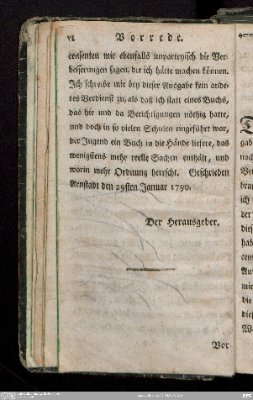 VI Vorrede.
censenten mir ebenfalls unpartenisch die Ver-
besserungen sagen, die ich hätte machen können.
Ich schreibe mir bey dieser Ausgabe kein ande-
res Verdienst zu, als daß ich statt eines Buchs,
das hie und da Berichtigungen nöthig hatte,
und doch in so vielen Schulen eingeführt war,
der Jugend ein Buch in die Hände liefere, das
wenigstens mehr reelle Sachen enthält, und
worin mehr Ordnung herrscht. Geschrieben
Arnstadt den 29sten Januar 1790.
Der Herausgeber.
Vor